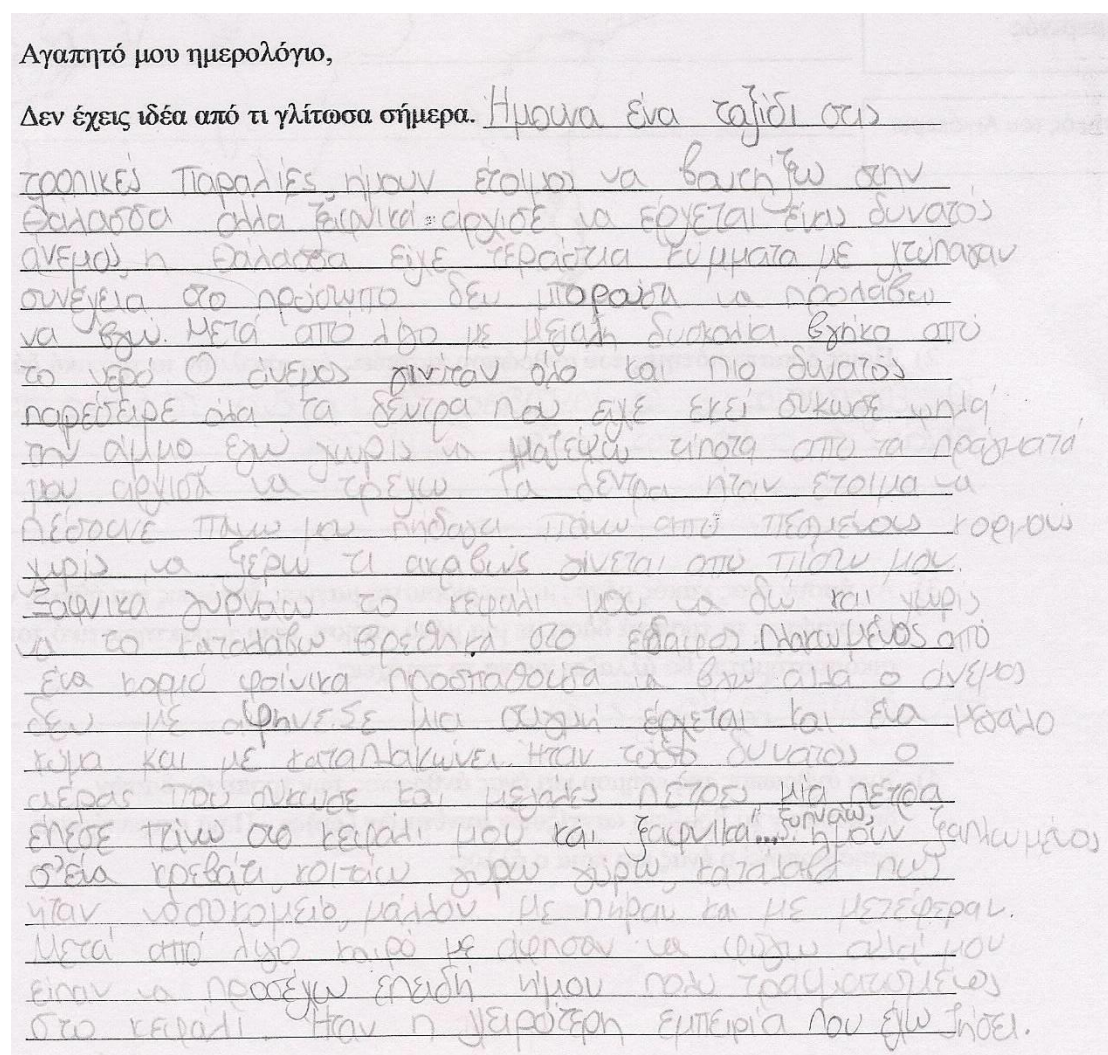 Αγαπητό μου ημερολόγιο,
Δεν έχεις ιδέα από τι γλίτωσα σήμερα. Ήμουνα ένα ταξίδι στις
τροπικές παραλιές, ήμουν έτοιμος να βουτήξω στην
θάλασσα αλλα ξαφνικά άρχισε να έρχεται ένας δυνατός
άνεμος, η θάλασσα είχε τεράστια κύμματα με χτύπαγαν
συνέχεια στο πρόσωπο δεν μπορούσα να προλάβω
να βγω. Μετά από λίγο με μεγάλη δυσκολία βγήκα από
το νερό Ο άνεμος γινταν όλο και πιο δυνατος
παρέσειρε όλα τα δέντρα που είχε εκεί συκωσε ψηλά
την άμμο εγώ χωρίς να μαζέψω τίποτα απο τα πράγματά
μου αρχισα να τρέχω Τα δέντρα ήταν έτοιμα να
πέσουνε πάνω μου πήδαγα πάνω από πεσμένους κορμούς
χωρίς να ξέρω τι ακριβώς γίνεται απο πίσω μου.
Ξαφνικα γυρναω το κεφαλι μου να δω και χωρίς
να το καταλάβω βρέθηκα στο έδαφος πλακωμένος από
ένα κορμό φοίνικα προσπαθούσα να βγω αλλά ο άνεμος
δεν με άφηνε σε μια στιγμή έρχεται και ένα μεγάλο
κύμα και με καταπλακώνει. Ήταν τόσο δυνατός ο
αέρας που συκωσε και μεγάλες πέτρες μία πέτρα
έπεσε πάνω στο κεφάλι μου και ξαφνικα... ξυπνάω, ήμουν ξαπλωμένος
σ'ένα κρεβάτι, κοιτάω γύρω γύρω, κατάλαβα πως
ήταν νοσοκομείο, μάλλον με πήραν και με μετέφεραν.
Μετά από λίγο καιρό με άφησαν να φύγω αλλά μου
είπαν να προσέχω επειδή ήμου πολυ τραματισμένος
στο κεφάλι. Ήταν η χειρότερη εμπειρία που έχω ζήσει.